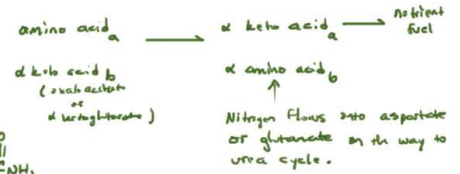 amino acid a → α keto acid a → nutrient fuel
α keto acid b α amino acid b
(oxaloacetate
or
α ketoglutarate)
Nitrogen flows into aspartate
or glutamate on the way to
urea cycle.
O
CNH2